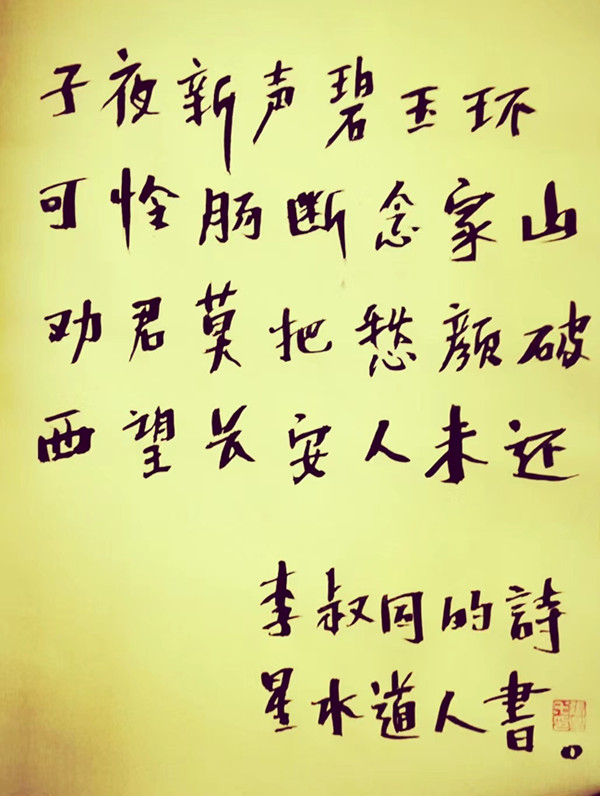 子夜新声碧玉环
可怜肠断念家山
劝君莫把愁颜破
西望长安人未还
李叔同的詩
星水道人書。